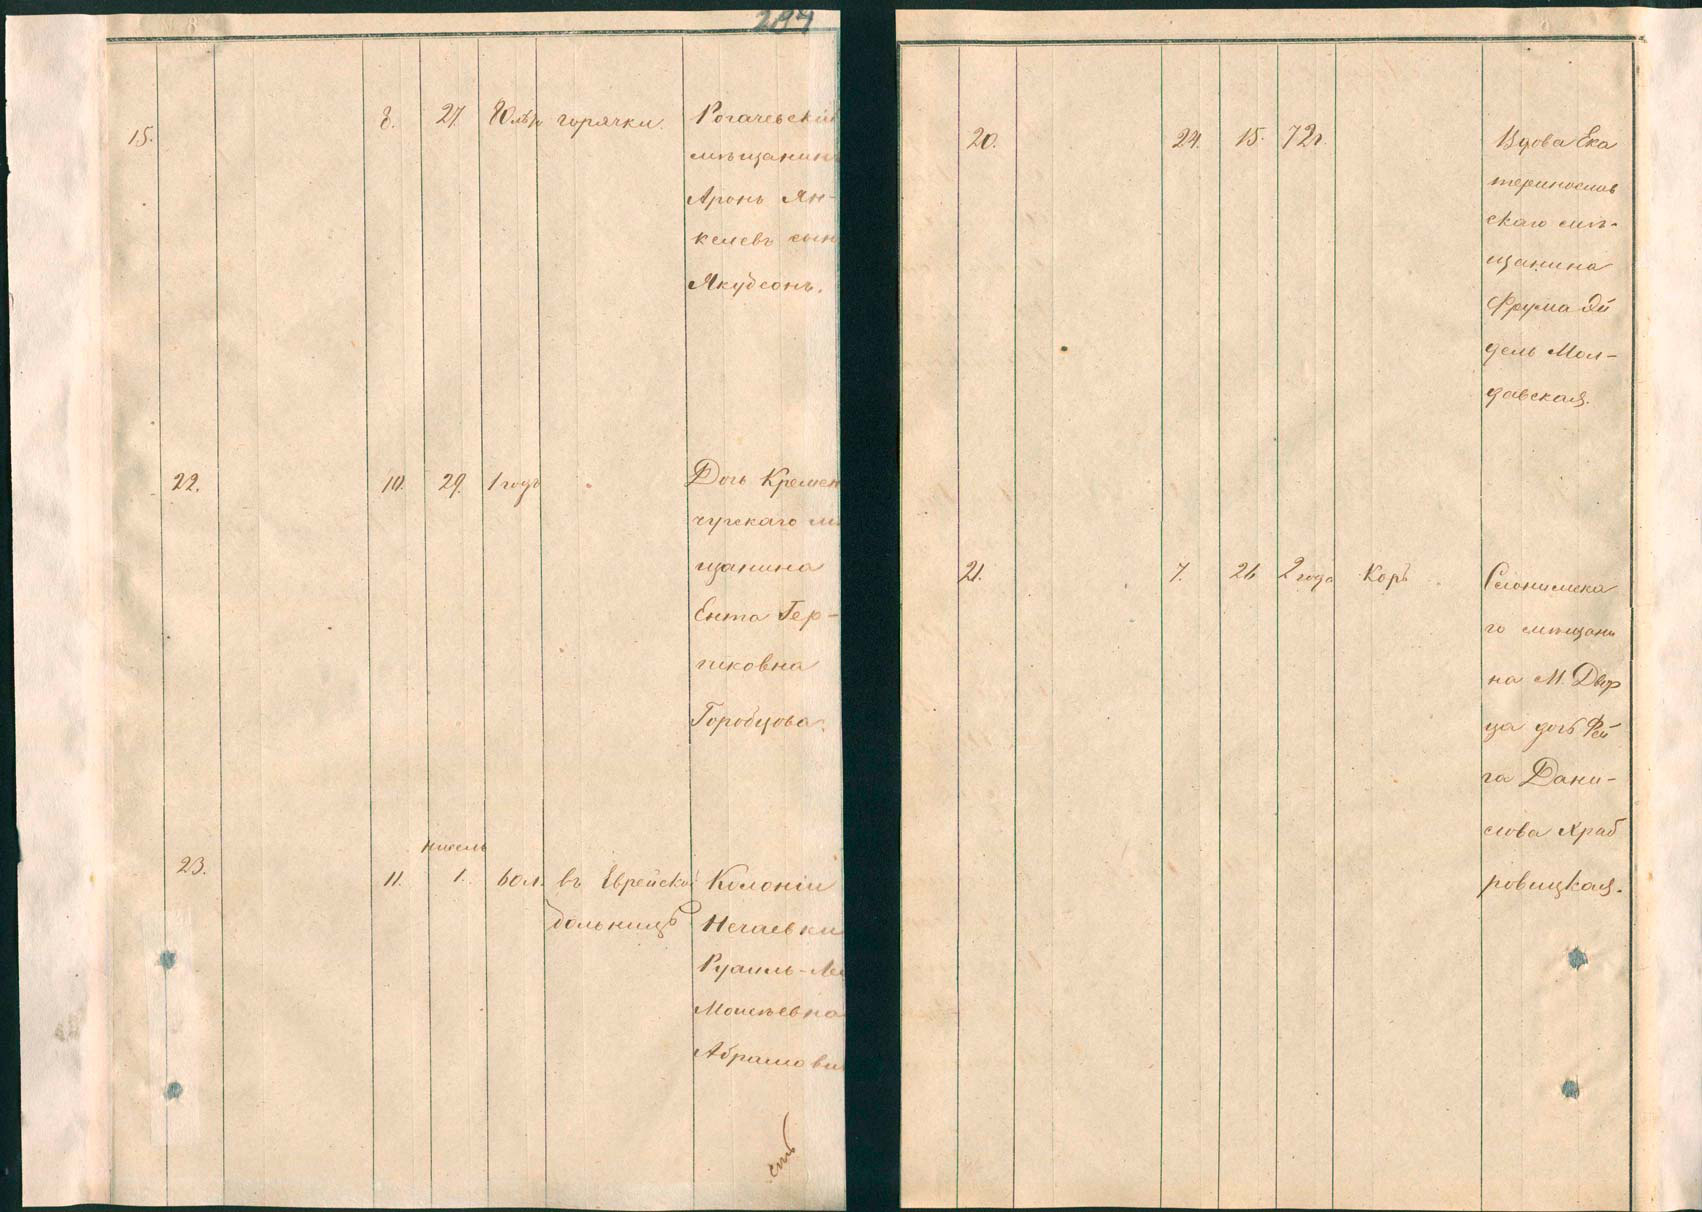 287
15.
8.
27.
горячки.
Рогачевскій
мѣщанинъ
Аронъ Ян-
келевъ сын
Якубсонъ.
22.
10.
29.
1 годъ
Дочь Кремен
чугскаго мѣ
щанина
Ента Гер-
шковна
Горобцова.
23.
11.
1.
60 л.
въ Еврейской
больницѣ
Колоніи
Нечаевки
Моисѣевна
Абрамович
20.
24.
15.
72 г.
Вдова Ека
теринослав
скаго мѣ-
щанина
Фрума Эй
дель Мол-
давская.
21.
7.
26
2 года
Корь
Слонимска
го мѣщани
на М. Двор
ца дочь Фей
га Дани-
лова Храб
ровицкая.